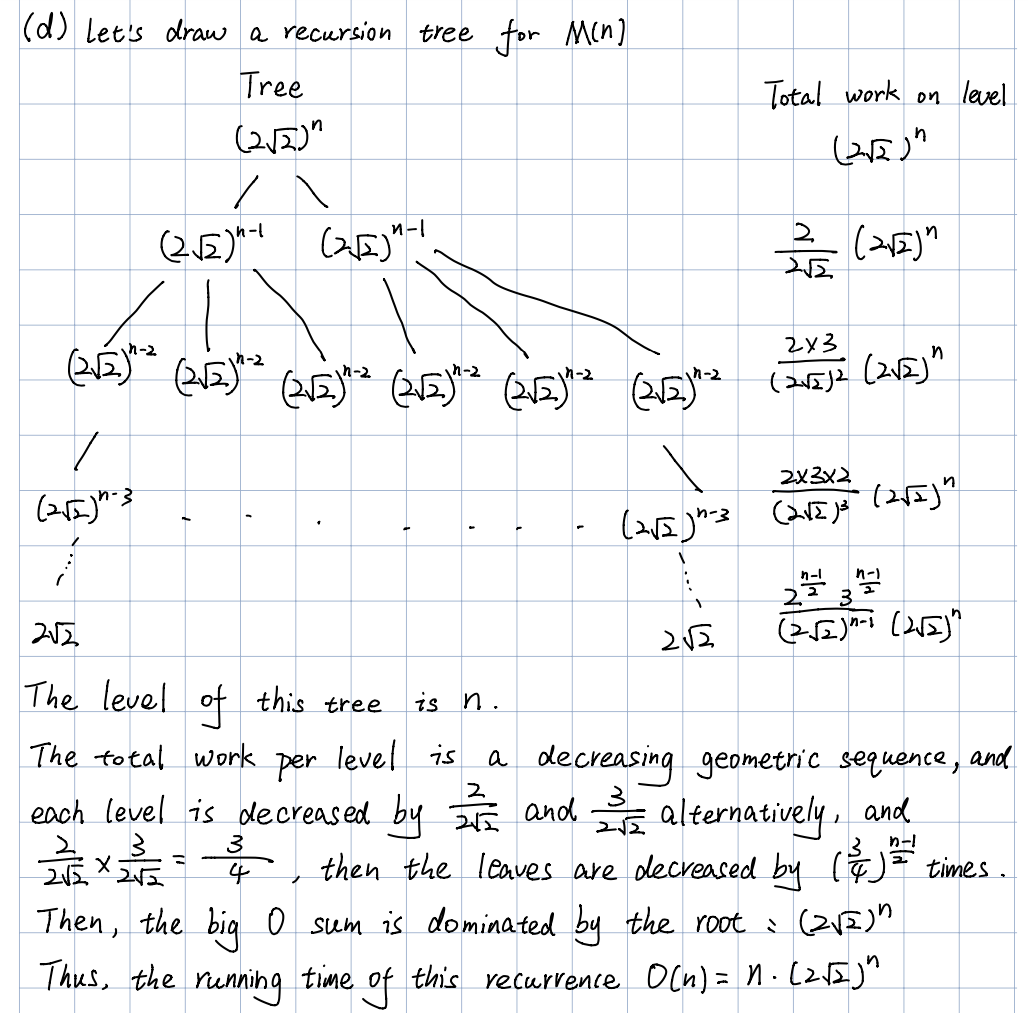 (d) Let's draw a recursion tree for M(n]
Tree
Total work on level
(2√2)ⁿ
(2√2)ⁿ
(2√2)ⁿ⁻¹ (2√2)ⁿ⁻¹
2/(2√2) (2√2)ⁿ
(2√2)ⁿ⁻² (2√2)ⁿ⁻² (2√2)ⁿ⁻² (2√2)ⁿ⁻² (2√2)ⁿ⁻² (2√2)ⁿ⁻²
2×3/(2√2)² (2√2)ⁿ
(2√2)ⁿ⁻³ . . . . . . . (2√2)ⁿ⁻³
2×3×2/(2√2)³ (2√2)ⁿ
2√2 2√2
2^((n-1)/2) 3^((n-1)/2)/(2√2)ⁿ⁻¹ (2√2)ⁿ
The level of this tree is n.
The total work per level is a decreasing geometric sequence, and
each level is decreased by 2/(2√2) and 3/(2√2) alternatively, and
2/(2√2) × 3/(2√2) = 3/4, then the leaves are decreased by (3/4)^((n-1)/2) times.
Then, the big O sum is dominated by the root : (2√2)ⁿ
Thus, the running time of this recurrence O(n) = n · (2√2)ⁿ